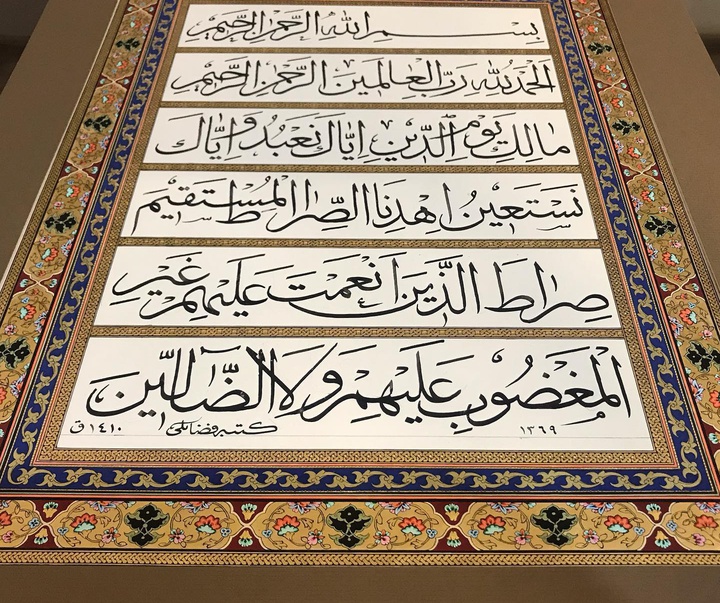 بِسْمِ اللهِ الرَّحْمٰنِ الرَّحیمِ
اَلْحَمْدُ لِلّٰهِ رَبِّ الْعالَمینَ الرَّحْمٰنِ الرَّحیمِ
مالِكِ یَوْمِ الدّینِ اِیّاكَ نَعْبُدُ وَ اِیّاكَ
نَسْتَعینُ اِهْدِنَا الصِّراطَ الْمُسْتَقیمَ
صِراطَ الَّذینَ اَنْعَمْتَ عَلَیْهِمْ غَیْرِ
الْمَغْضُوبِ عَلَیْهِمْ وَلَا الضّآلّینَ
۱۳۶۹ کتبه فضائلی ۱٤۱۰ ق